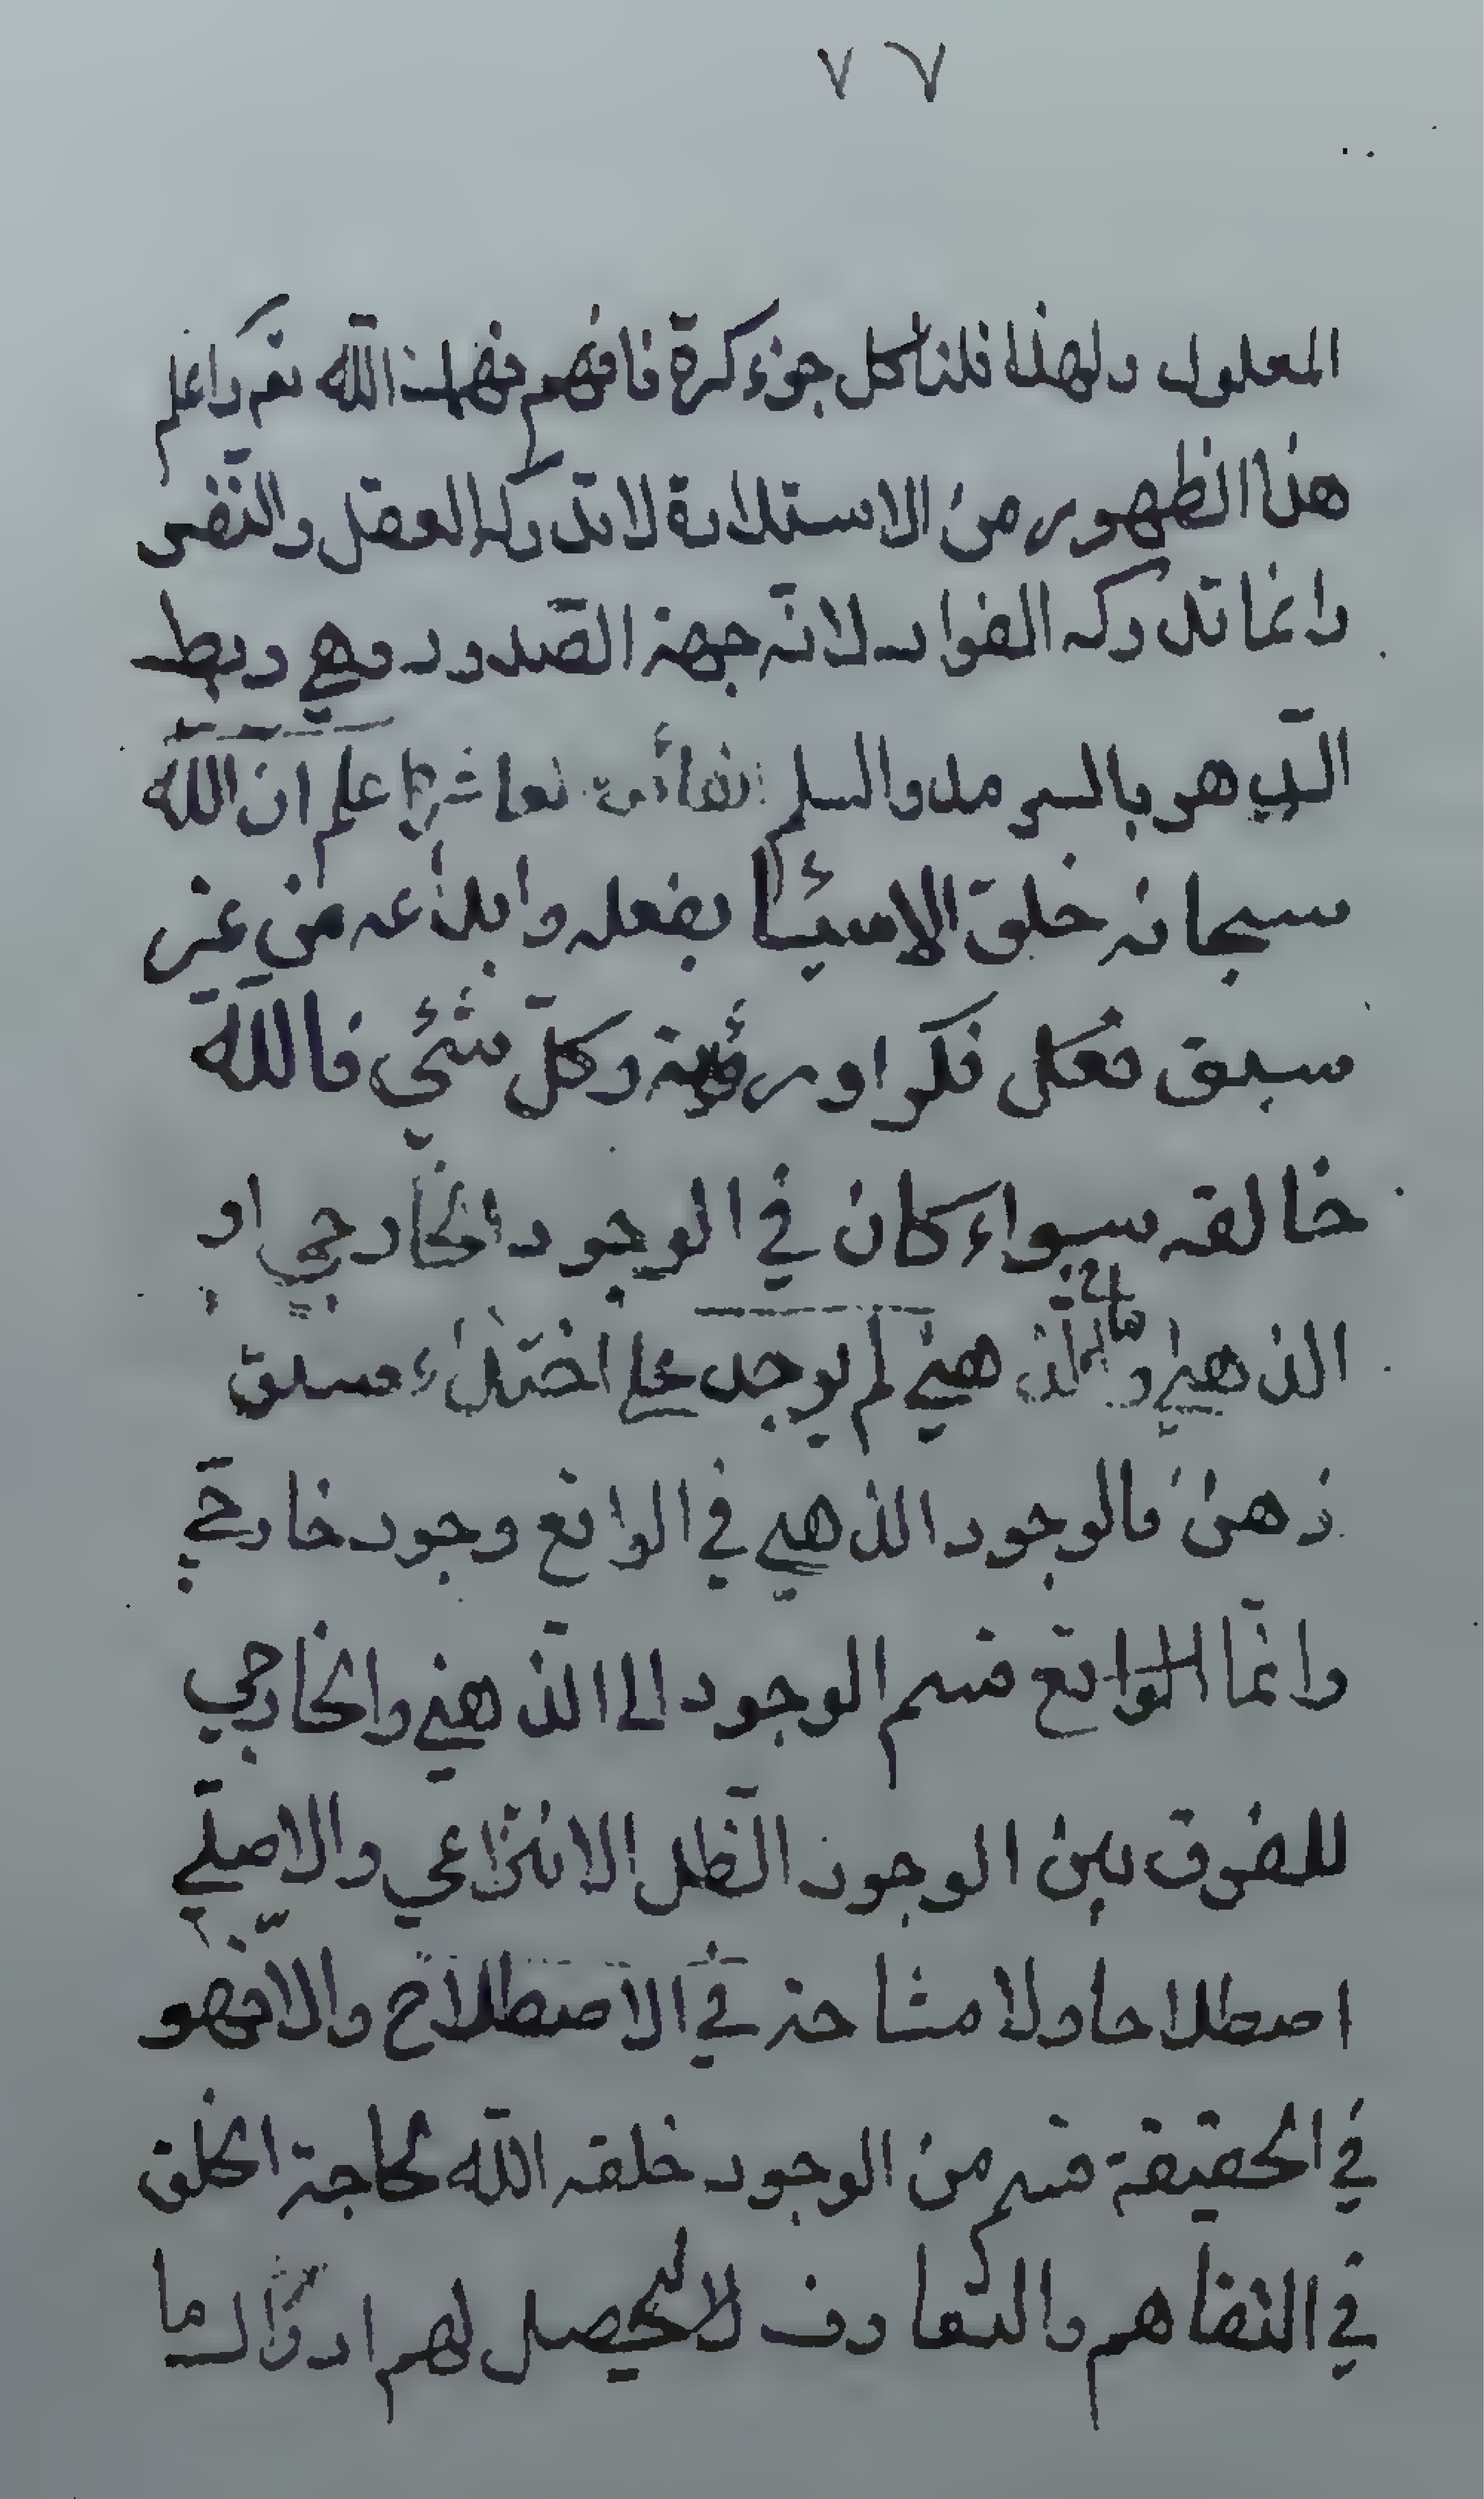 ٧٦
المعلول ولهذا قلنا كل جزء كرة فافهم فهمك الله ثم واعلم
هذا الظهور من الاستدارة لا تدركه العقل والنفس
وانما تدركه الفواد لانه جهة الصدور وهي وبط
الذي هو بالسرمد والسلم ثم اعلم ان الله
سبحانه خلق الاشيأ بفعله وابداعه من غير
سبق فعل فكر او روية وكل شئي فالله
خالقه سواء كان في الوجود الخارجي او
الذهني والذهني لم يوجد علي احتذاء مسبق
ذهن فالوجود الذهني في الواقع وجود خارجي
وانما الواقع قسم الوجود الي الذهني والخارجي
للفرق بين الوجود الظل الانتزاعي والاصلي
اصطلاحا ولا مشاحة في الاصطلاح والا فهو
في الحقيقة قسم من الوجود خلقه الله لحاجة الخلق
في التفاهم والتعارف لا يحصل لهم ادراك ما